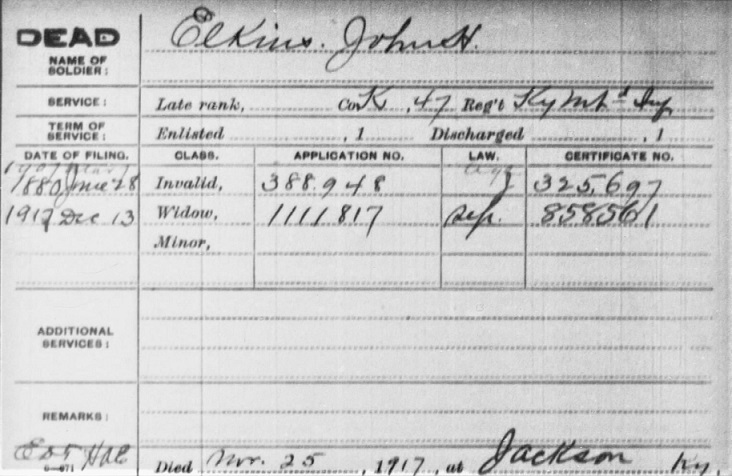 DEAD
Elkins, John H.
NAME OF
SOLDIER:
SERVICE: Late rank, Co. K, 47 Reg't Ky Mt'd Inf
TERM OF
SERVICE: Enlisted , 1 Discharged , 1
DATE OF FILING. CLASS. APPLICATION NO. LAW. CERTIFICATE NO.
1880 June 28 Invalid, 388.948 325,697
1917 Dec 13 Widow, 1111817 Sep. 858561
Minor,
ADDITIONAL
SERVICES:
REMARKS:
Died Nov. 25, 1917, at Jackson Ky.